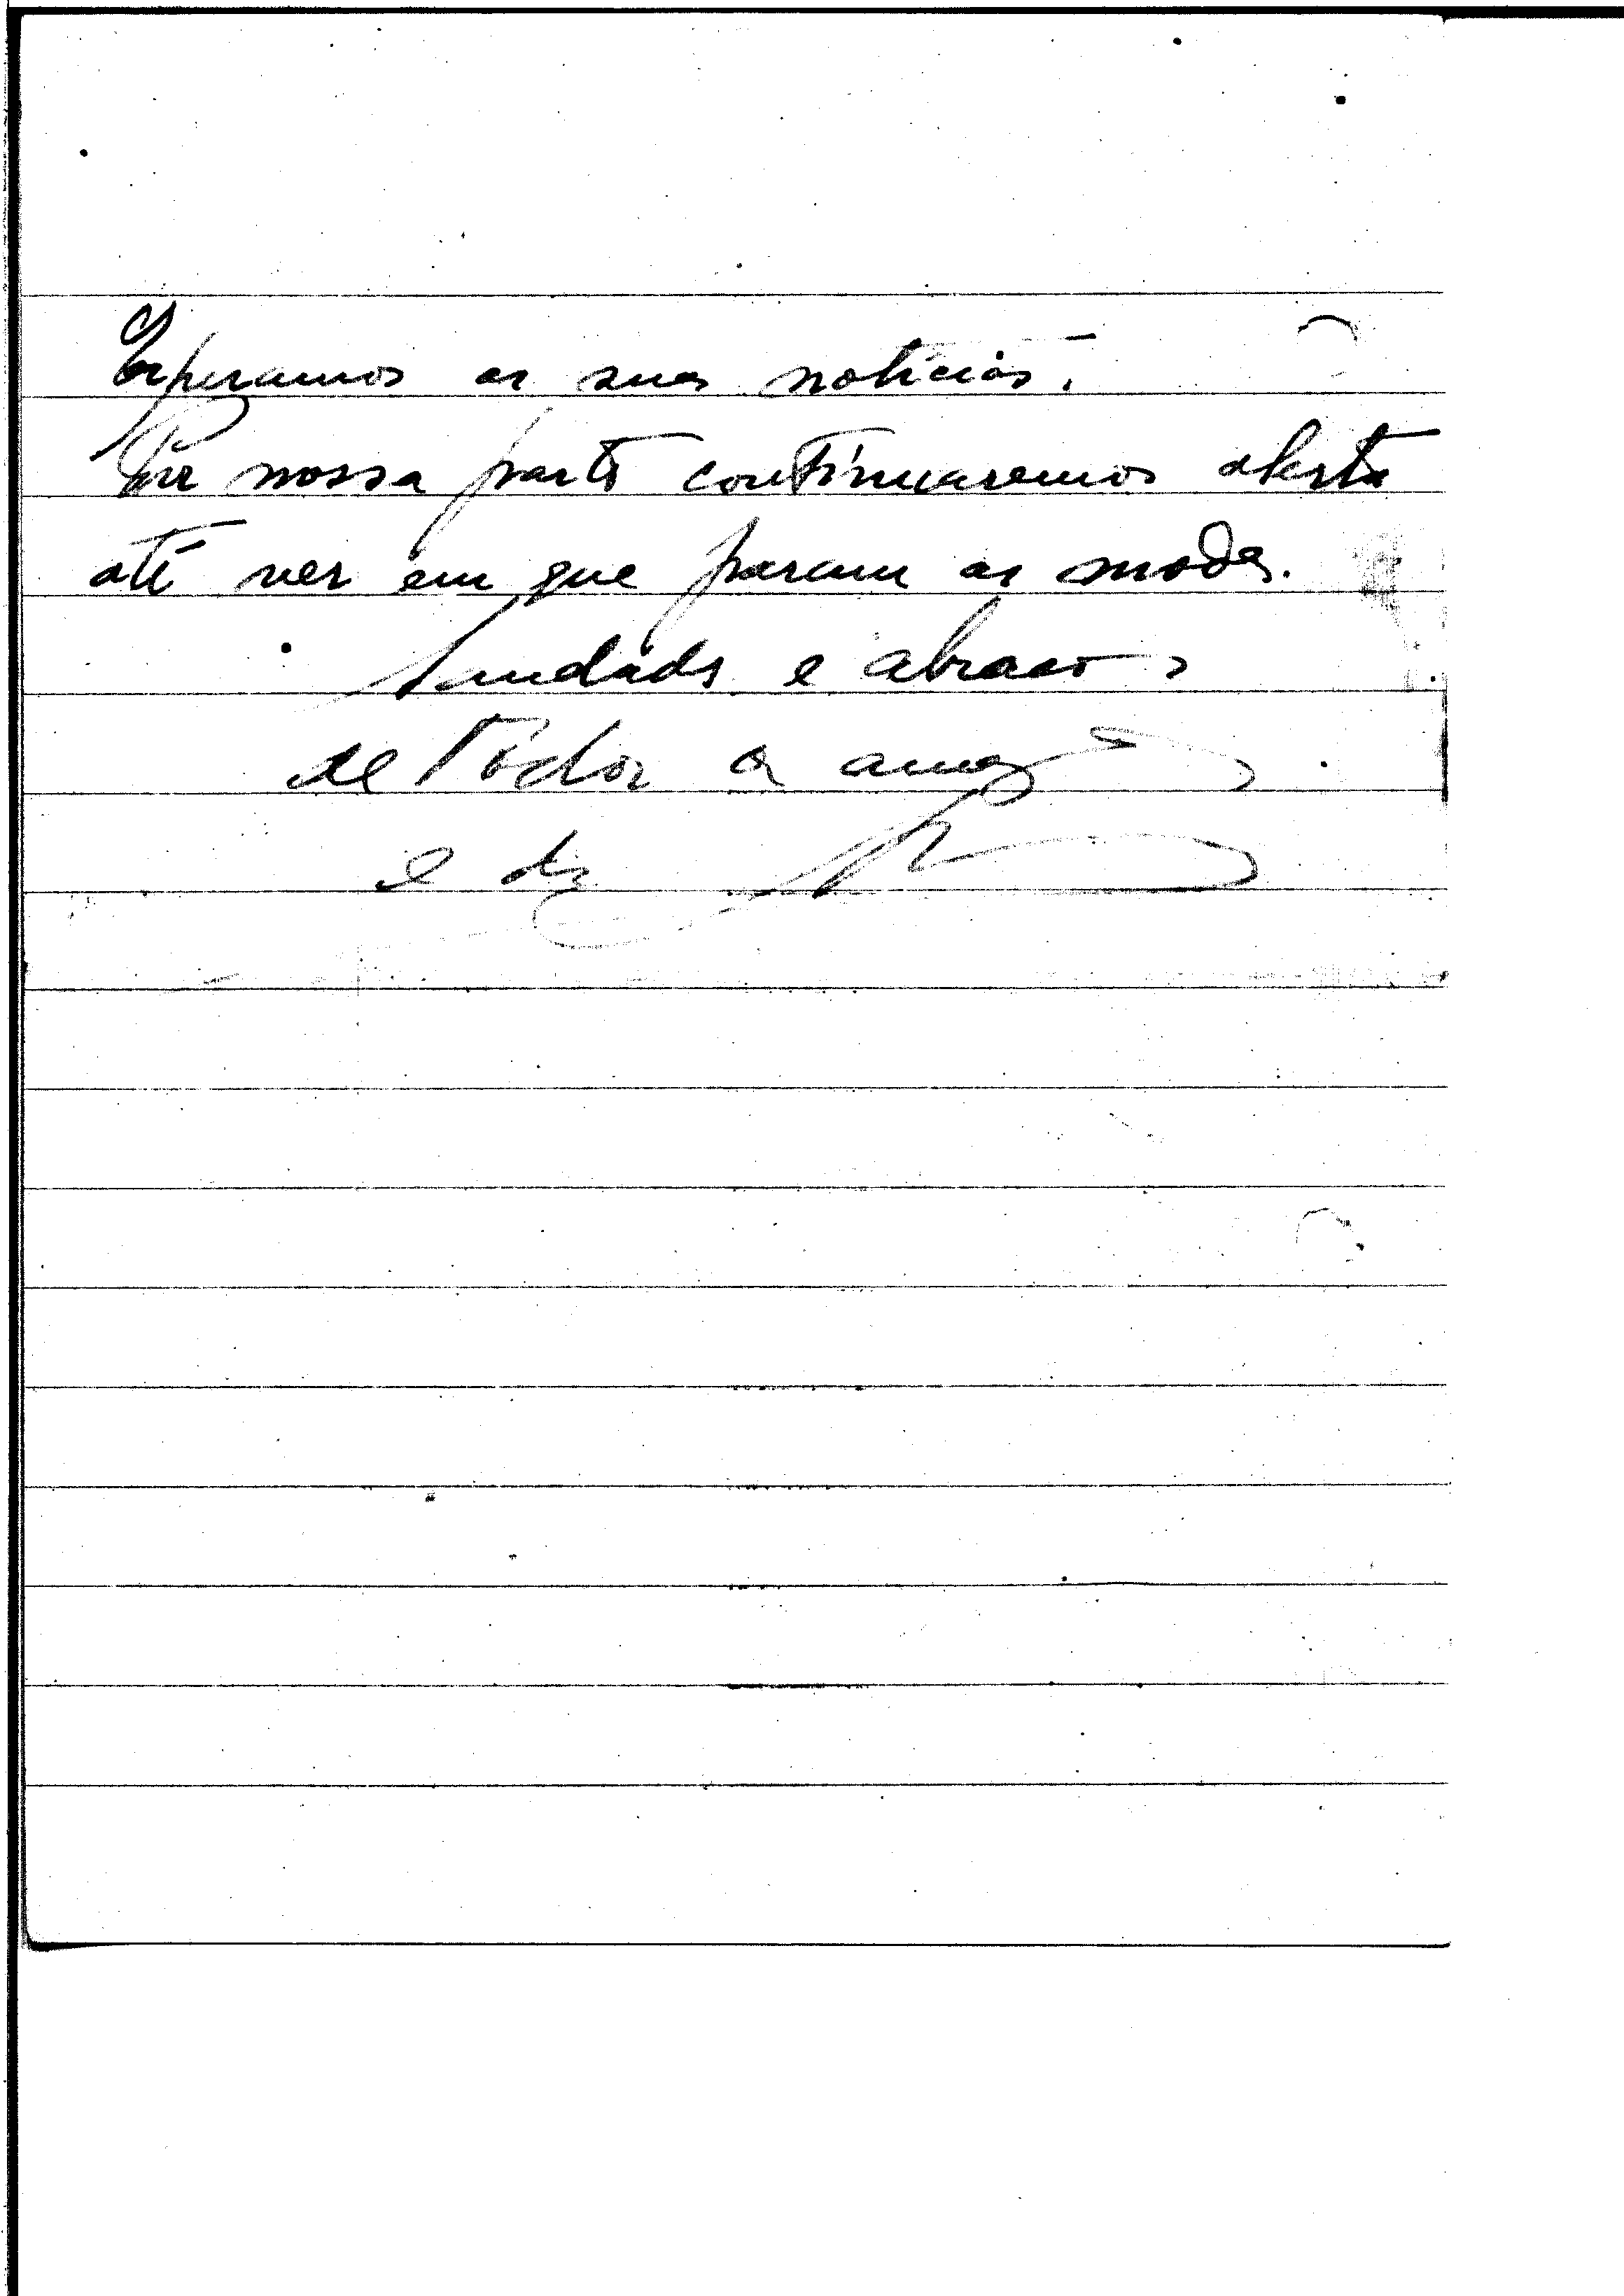 Esperamos as suas notícias.
Por nossa parte continuaremos alerta
até ver em que param as modas.
Saudades e abraços
de todos os amigos
e do